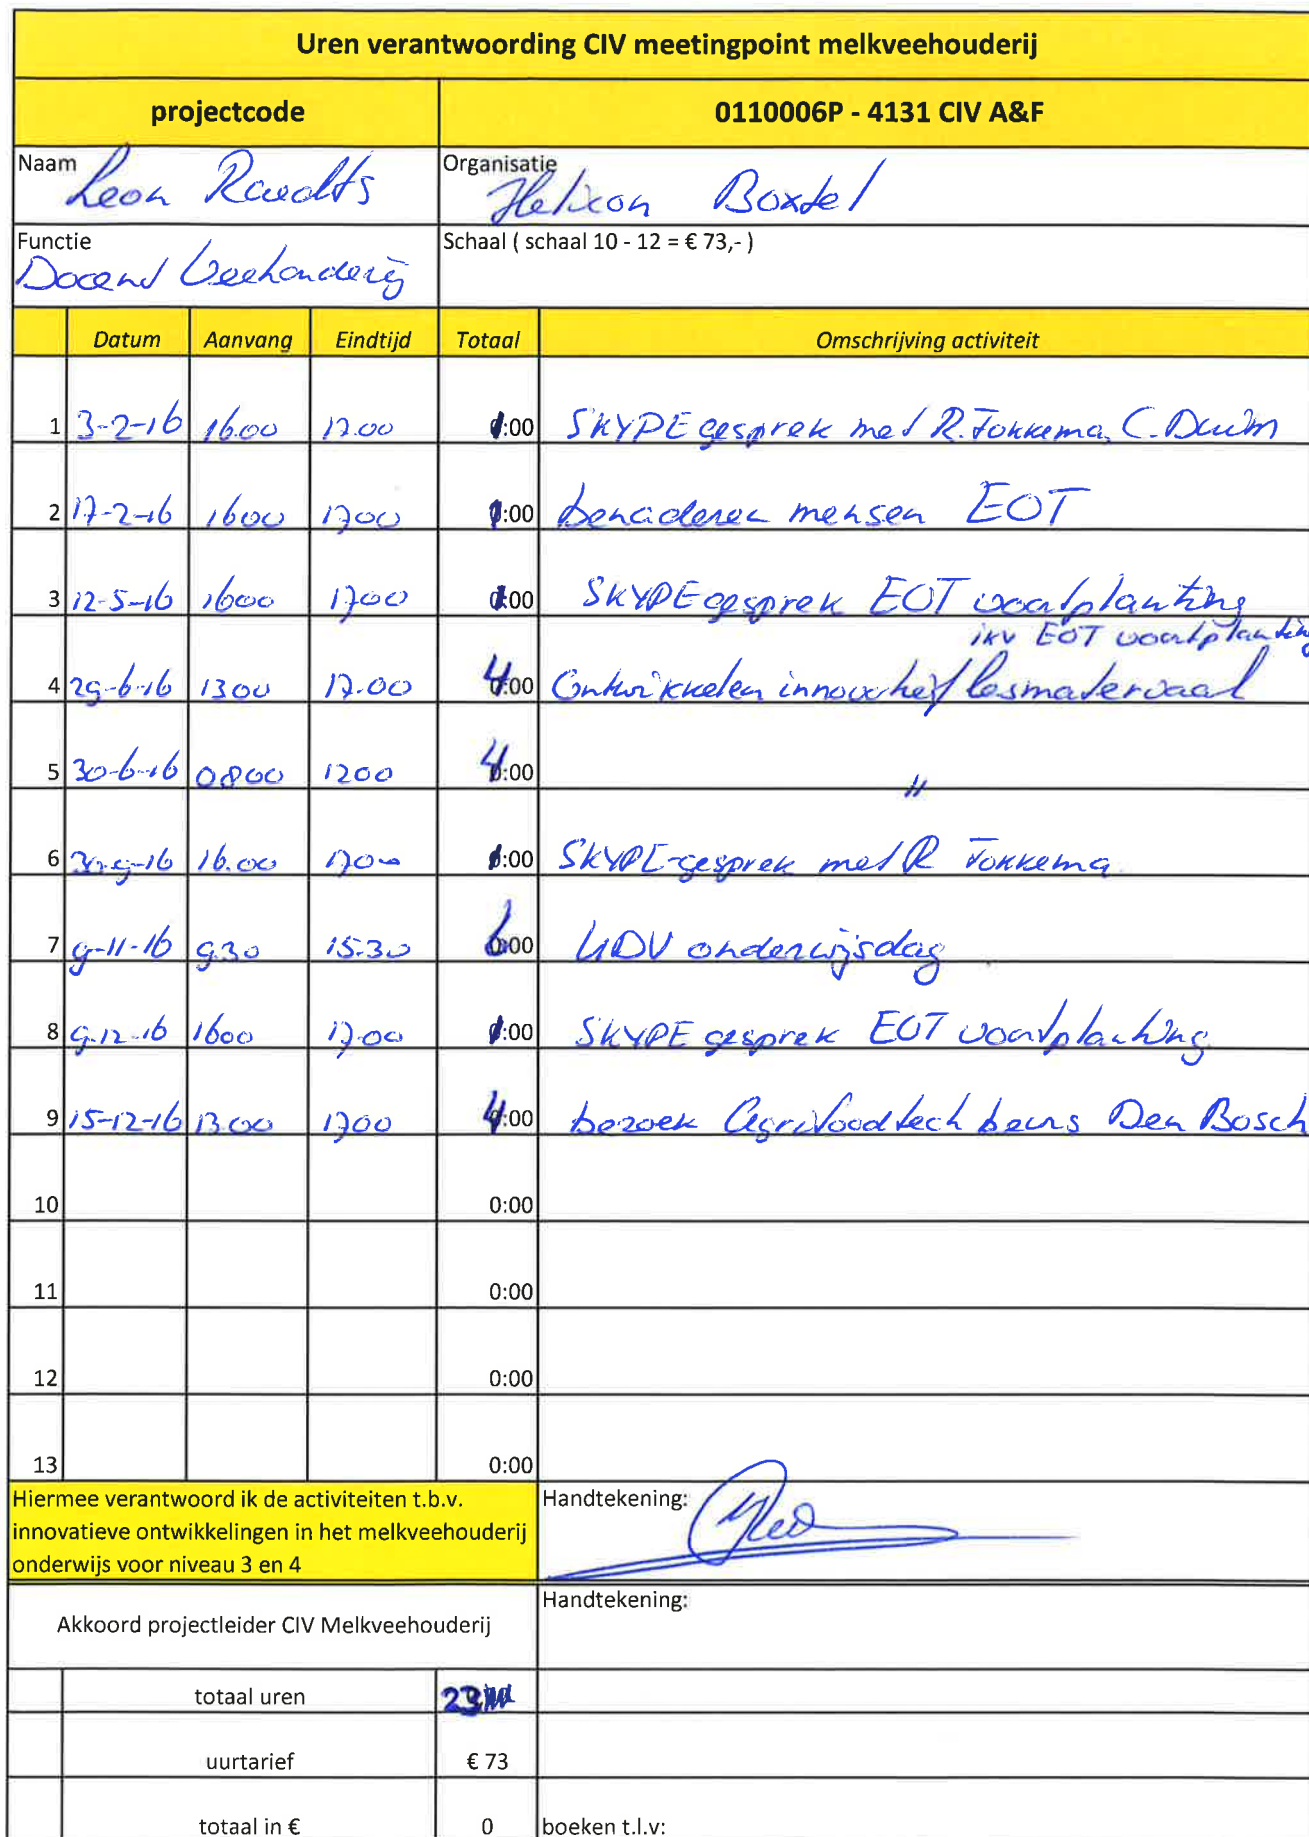 Uren verantwoording CIV meetingpoint melkveehouderij
projectcode 0110006P - 4131 CIV A&F
Naam Leon Raedts Organisatie Helicon Boxtel
Functie Docent Veehouderij Schaal ( schaal 10 - 12 = € 73,- )
Datum Aanvang Eindtijd Totaal Omschrijving activiteit
1 3-2-16 16.00 17.00 1:00 SKYPE gesprek met R. Fokkema, C. Duim
2 17-2-16 1600 1700 1:00 benaderen mensen EOT
3 12-5-16 1600 1700 1:00 SKYPE gesprek EOT voortplanting
ikv EOT voortplanting
4 29-6-16 1300 17.00 4:00 Ontwikkelen innovatief lesmateriaal
5 30-6-16 0800 1200 4:00 "
6 30-9-16 16.00 1700 1:00 SKYPE-gesprek met R Fokkema
7 9-11-16 9.30 15.30 6:00 UDV onderwijsdag
8 9-12-16 1600 17.00 1:00 SKYPE gesprek EOT voortplanting
9 15-12-16 13.00 1700 4:00 bezoek Agrifoodtech beurs Den Bosch
10 0:00
11 0:00
12 0:00
13 0:00
Hiermee verantwoord ik de activiteiten t.b.v. Handtekening:
innovatieve ontwikkelingen in het melkveehouderij
onderwijs voor niveau 3 en 4
Handtekening:
Akkoord projectleider CIV Melkveehouderij
totaal uren 23
uurtarief € 73
totaal in € 0 boeken t.l.v: